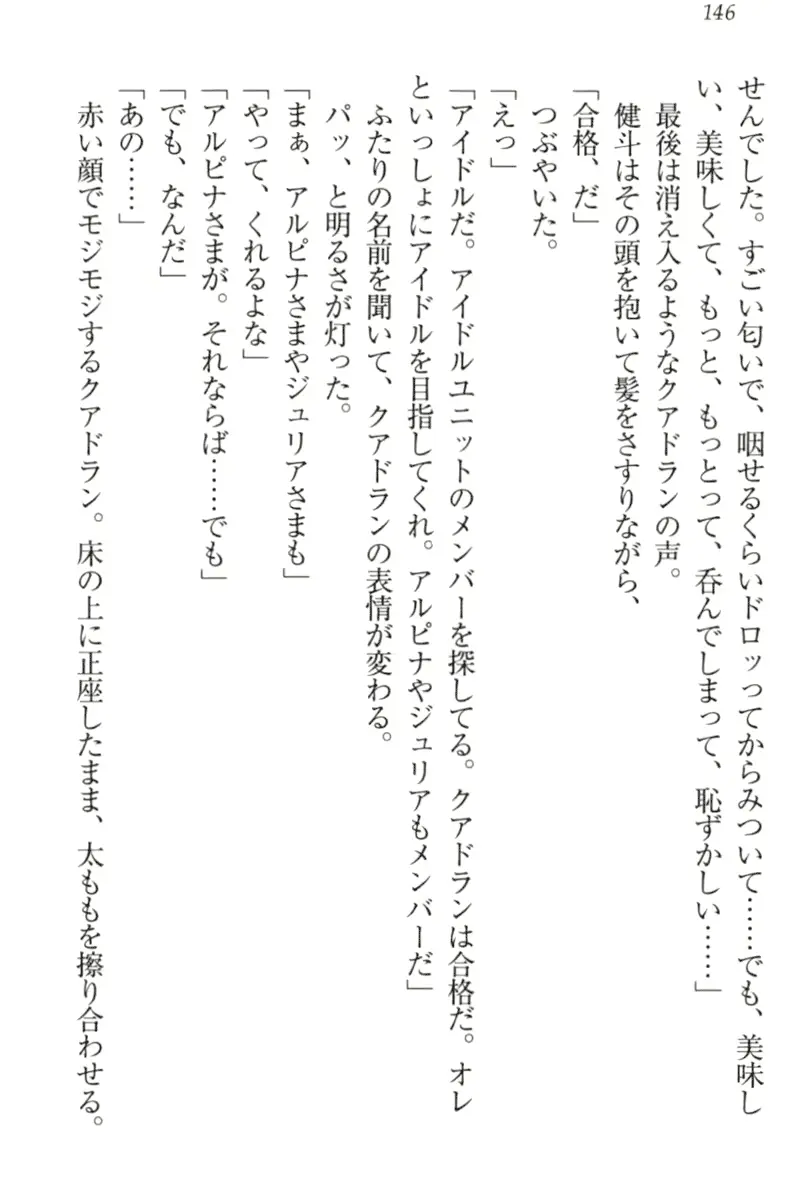 146
せんでした。すごい匂いで、咽せるくらいドロッってからみついて……でも、美味し
い、美味しくて、もっと、もっとって、呑んでしまって、恥ずかしい……」
最後は消え入るようなクアドランの声。
健斗はその頭を抱いて髪をさすりながら、
「合格、だ」
つぶやいた。
「えっ」
「アイドルだ。アイドルユニットのメンバーを探してる。クアドランは合格だ。オレ
といっしょにアイドルを目指してくれ。アルピナやジュリアもメンバーだ」
ふたりの名前を聞いて、クアドランの表情が変わる。
パッ、と明るさが灯った。
「まぁ、アルピナさまやジュリアさまも」
「やって、くれるよな」
「アルピナさまが。それならば……でも」
「でも、なんだ」
「あの……」
赤い顔でモジモジするクアドラン。床の上に正座したまま、太ももを擦り合わせる。